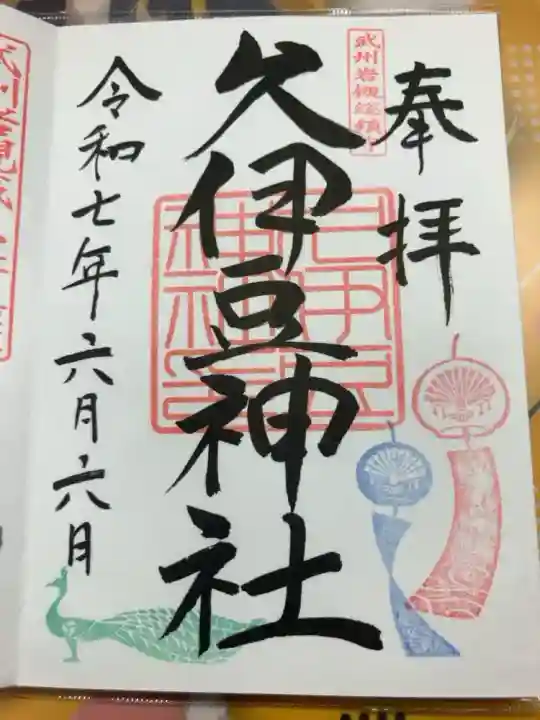 奉拝
武州岩槻総鎮守
久伊豆神社
令和七年六月六日